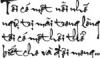 Tôi có một nỗi nhớ
người tôi mãi trong lòng
tôi có một lời thề
biết cho và đợi mong...